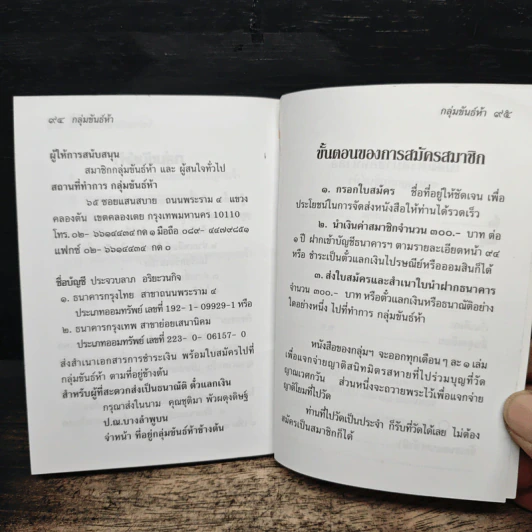 ๙๔ กลุ่มขันธ์ห้า
ผู้ให้การสนับสนุน
สมาชิกกลุ่มขันธ์ห้า และ ผู้สนใจทั่วไป
สถานที่ทำการ กลุ่มขันธ์ห้า
๖๕ ซอยแสนสบาย ถนนพระราม ๔ แขวง
คลองตัน เขตคลองเตย กรุงเทพมหานคร 10110
โทร. ๐๒- ๖๖๑๔๔๓๔ กด ๑ มือถือ ๐๘๙- ๔๔๗๙๔๕๑
แฟกซ์ ๐๒- ๖๖๑๔๔๓๔ กด ๐
ชื่อบัญชี ประจวบลาภ อริยะวนกิจ
๑. ธนาคารกรุงไทย สาขาถนนพระราม ๔
ประเภทออมทรัพย์ เลขที่ 192- 1- 09929-1 หรือ
๒. ธนาคารกรุงเทพ สาขาย่อยเสนานิคม
ประเภทออมทรัพย์ เลขที่ 223- 0- 06157- 0
ส่งสำเนาเอกสารการชำระเงิน พร้อมใบสมัครไปที่
กลุ่มขันธ์ห้า ตามที่อยู่ข้างต้น
สำหรับผู้ที่สะดวกส่งเป็นธนาณัติ ตั๋วแลกเงิน
กรุณาส่งในนาม คุณชุติมา พัวผดุงดิษฐ์
ป.ณ.บางลำพูบน
จ่าหน้า ที่อยู่กลุ่มขันธ์ห้าข้างต้น
กลุ่มขันธ์ห้า ๙๕
ขั้นตอนของการสมัครสมาชิก
๑. กรอกใบสมัคร ชื่อที่อยู่ให้ชัดเจน เพื่อ
ประโยชน์ในการจัดส่งหนังสือให้ท่านได้รวดเร็ว
๒. นำเงินค่าสมาชิกจำนวน ๓๐๐.- บาท ต่อ
๑ ปี ฝากเข้าบัญชีธนาคารฯ ตามรายละเอียดหน้า ๙๔
หรือ ชำระเป็นตั๋วแลกเงินไปรษณีย์หรือออมสินก็ได้
๓. ส่งใบสมัครและสำเนาใบนำฝากธนาคาร
จำนวน ๓๐๐.- บาท หรือตั๋วแลกเงินหรือธนาณัติอย่าง
ใดอย่างหนึ่ง ไปที่ทำการ กลุ่มขันธ์ห้า
หนังสือของกลุ่มฯ จะออกทุกเดือนๆ ละ ๑ เล่ม
เพื่อแจกจ่ายญาติสนิทมิตรสหายที่ไปร่วมบุญที่วัด
ญาณเวศกวัน ส่วนหนึ่งจะถวายพระไว้เพื่อแจกจ่าย
ญาติโยมที่ไปวัด
ท่านที่ไปวัดเป็นประจำ ก็รับที่วัดได้เลย ไม่ต้อง
สมัครเป็นสมาชิกก็ได้